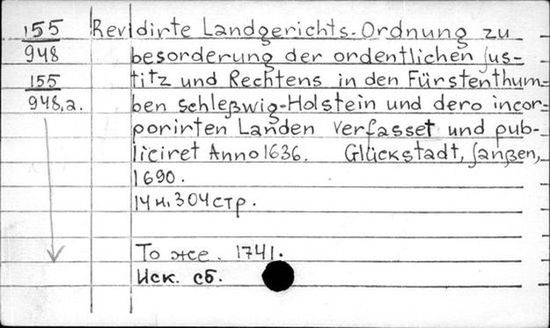 155 Revidirte Landgerichts-Ordnung zu
948 besorderung der ordentlichen Jus-
155 titz und Rechtens in den Fürstenthum-
948,a. ben Schleßwig-Holstein und dero incor-
porirten Landen verfasset und pub-
liciret Anno 1636. Glückstadt, Janßen,
1690.
14 н. 304 стр.
То же. 1741.
Иск. сб.